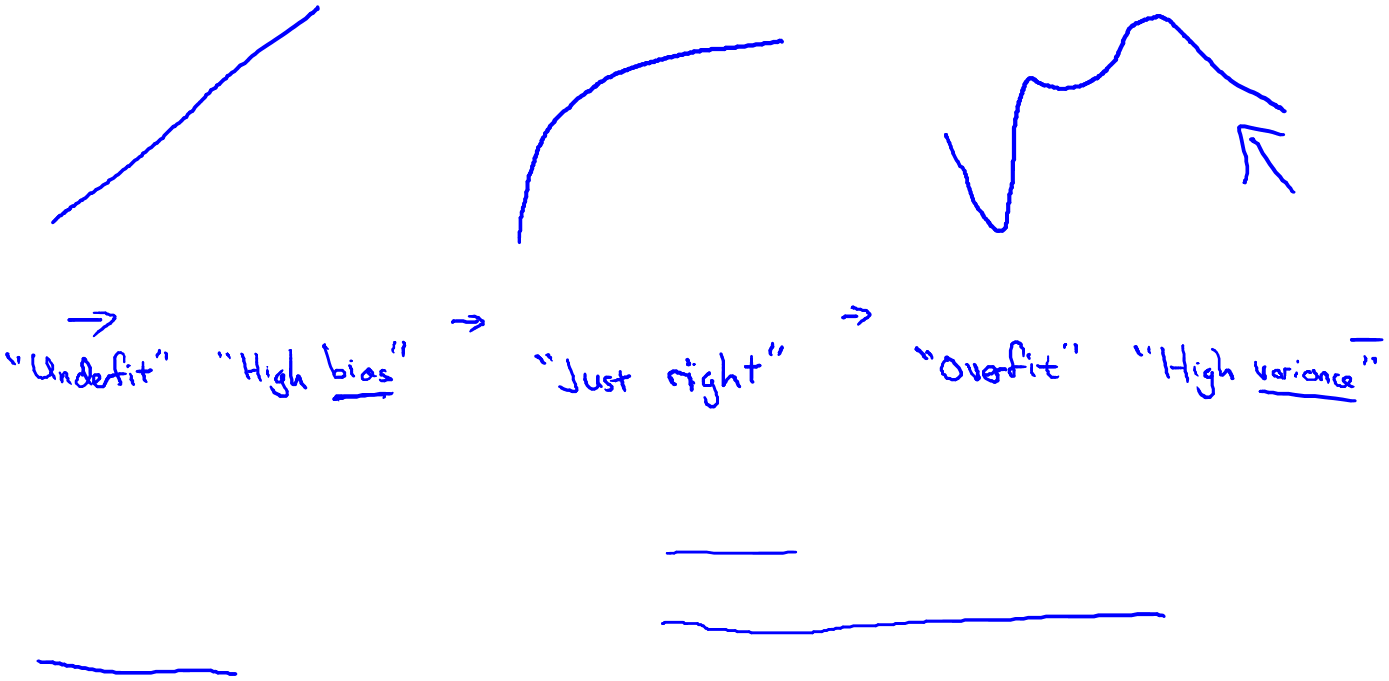 "Underfit" "High bias" "Just right" "Overfit" "High variance"